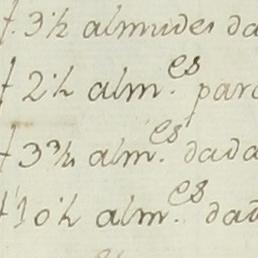 + 3½ almudes da
+ 2½ alm.es para
+ 3¾ alm.es dada
+ 10½ alm.es dad